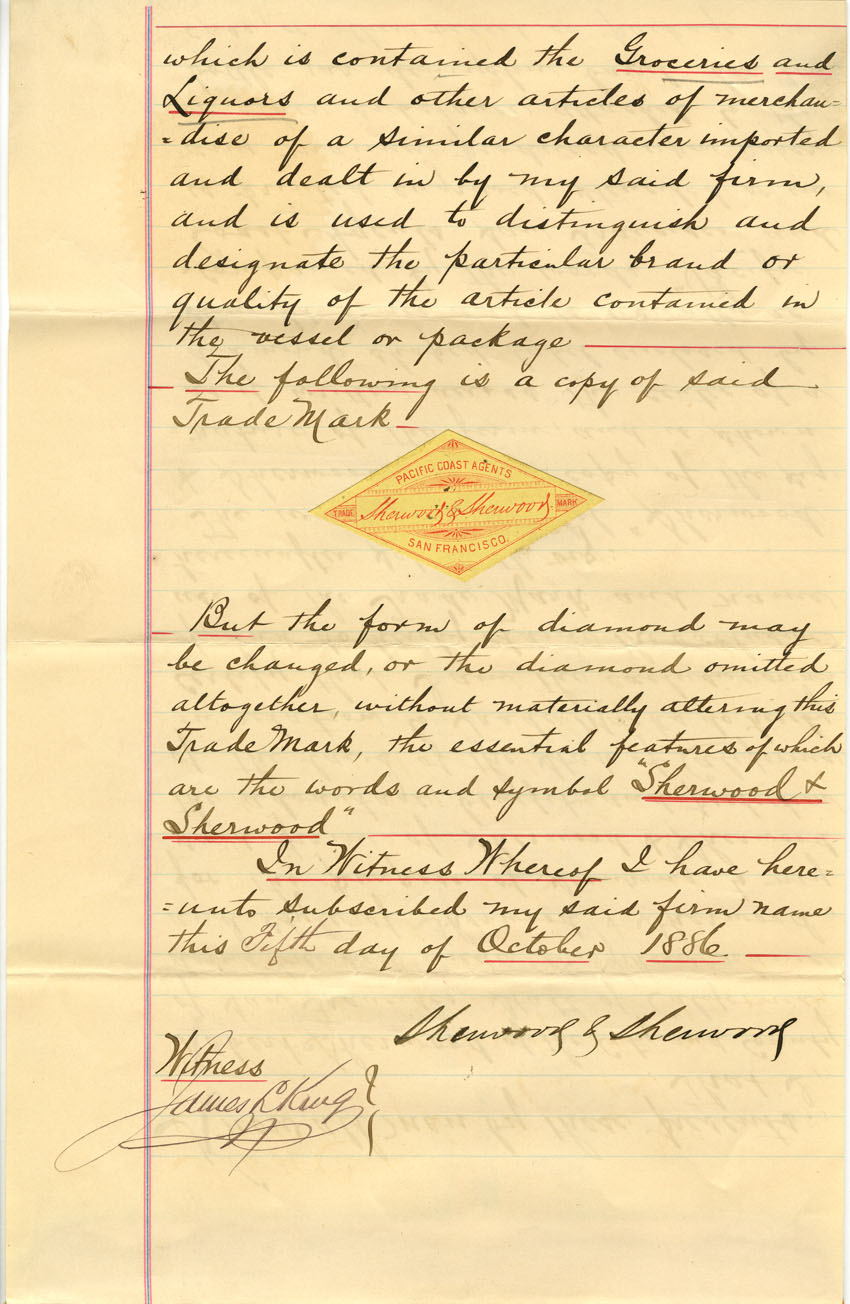 which is contained the Groceries and
Liquors and other articles of merchan=
=dise of a similar character imported
and dealt in by my said firm,
and is used to distinguish and
designate the particular brand or
quality of the article contained in
the vessel or package
The following is a copy of said
Trade Mark
PACIFIC COAST AGENTS
TRADE Sherwood & Sherwood MARK
SAN FRANCISCO.
But the form of diamond may
be changed, or the diamond omitted
altogether, without materially altering this
Trade Mark, the essential features of which
are the words and symbol "Sherwood &
Sherwood"
In Witness Whereof I have here=
=unto subscribed my said firm name
this Fifth day of October 1886.
Sherwood & Sherwood
Witness
James L King